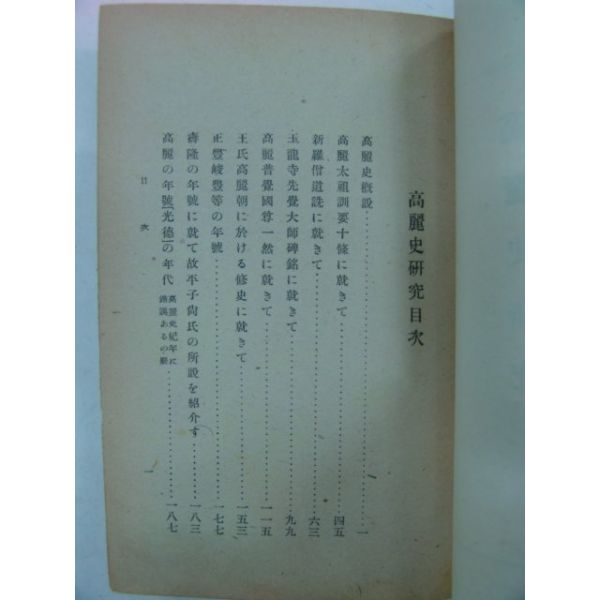 高麗史研究目次
高麗史概說………一
高麗太祖訓要十條に就きて………四五
新羅僧道詵に就きて………六三
玉龍寺先覺大師碑銘に就きて………九九
高麗普覺國尊一然に就きて………一一五
王氏高麗朝に於ける修史に就きて………一五三
正豐峻豐等の年號………一七七
壽隆の年號に就て故平子尙氏の所說を紹介す………一八三
高麗の年號「光德」の年代 高麗史紀年に
錯誤あるの嚴………一八七
目次
一